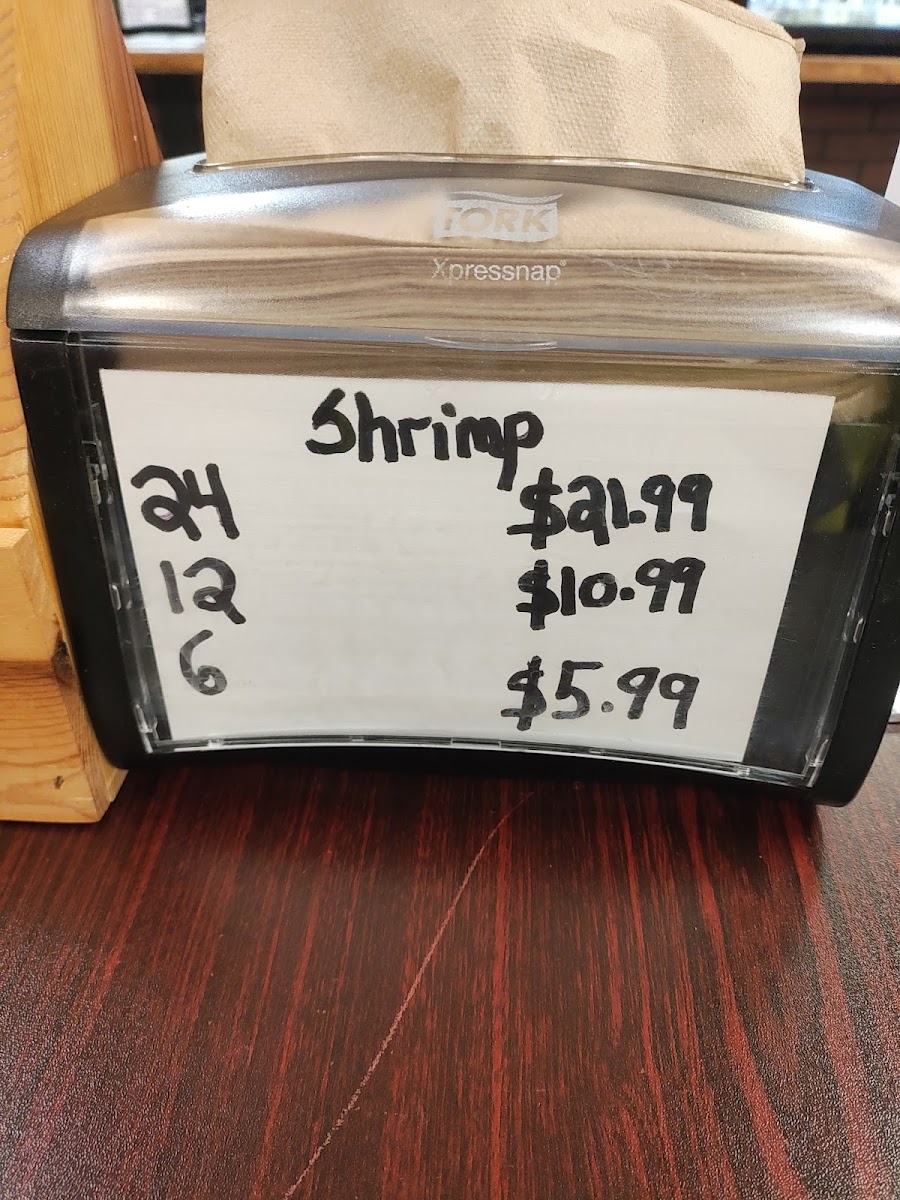 TORK
Xpressnap®
Shrimp
24 $21.99
12 $10.99
6 $5.99